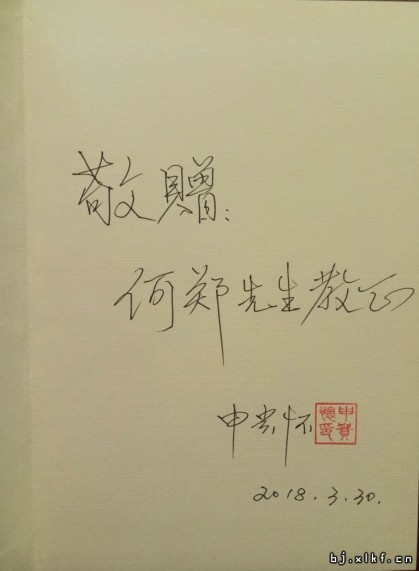 敬贈:
何郑先生教正
申贵怀
申貴懷印
2018.3.30.
bj.xlkf.cn